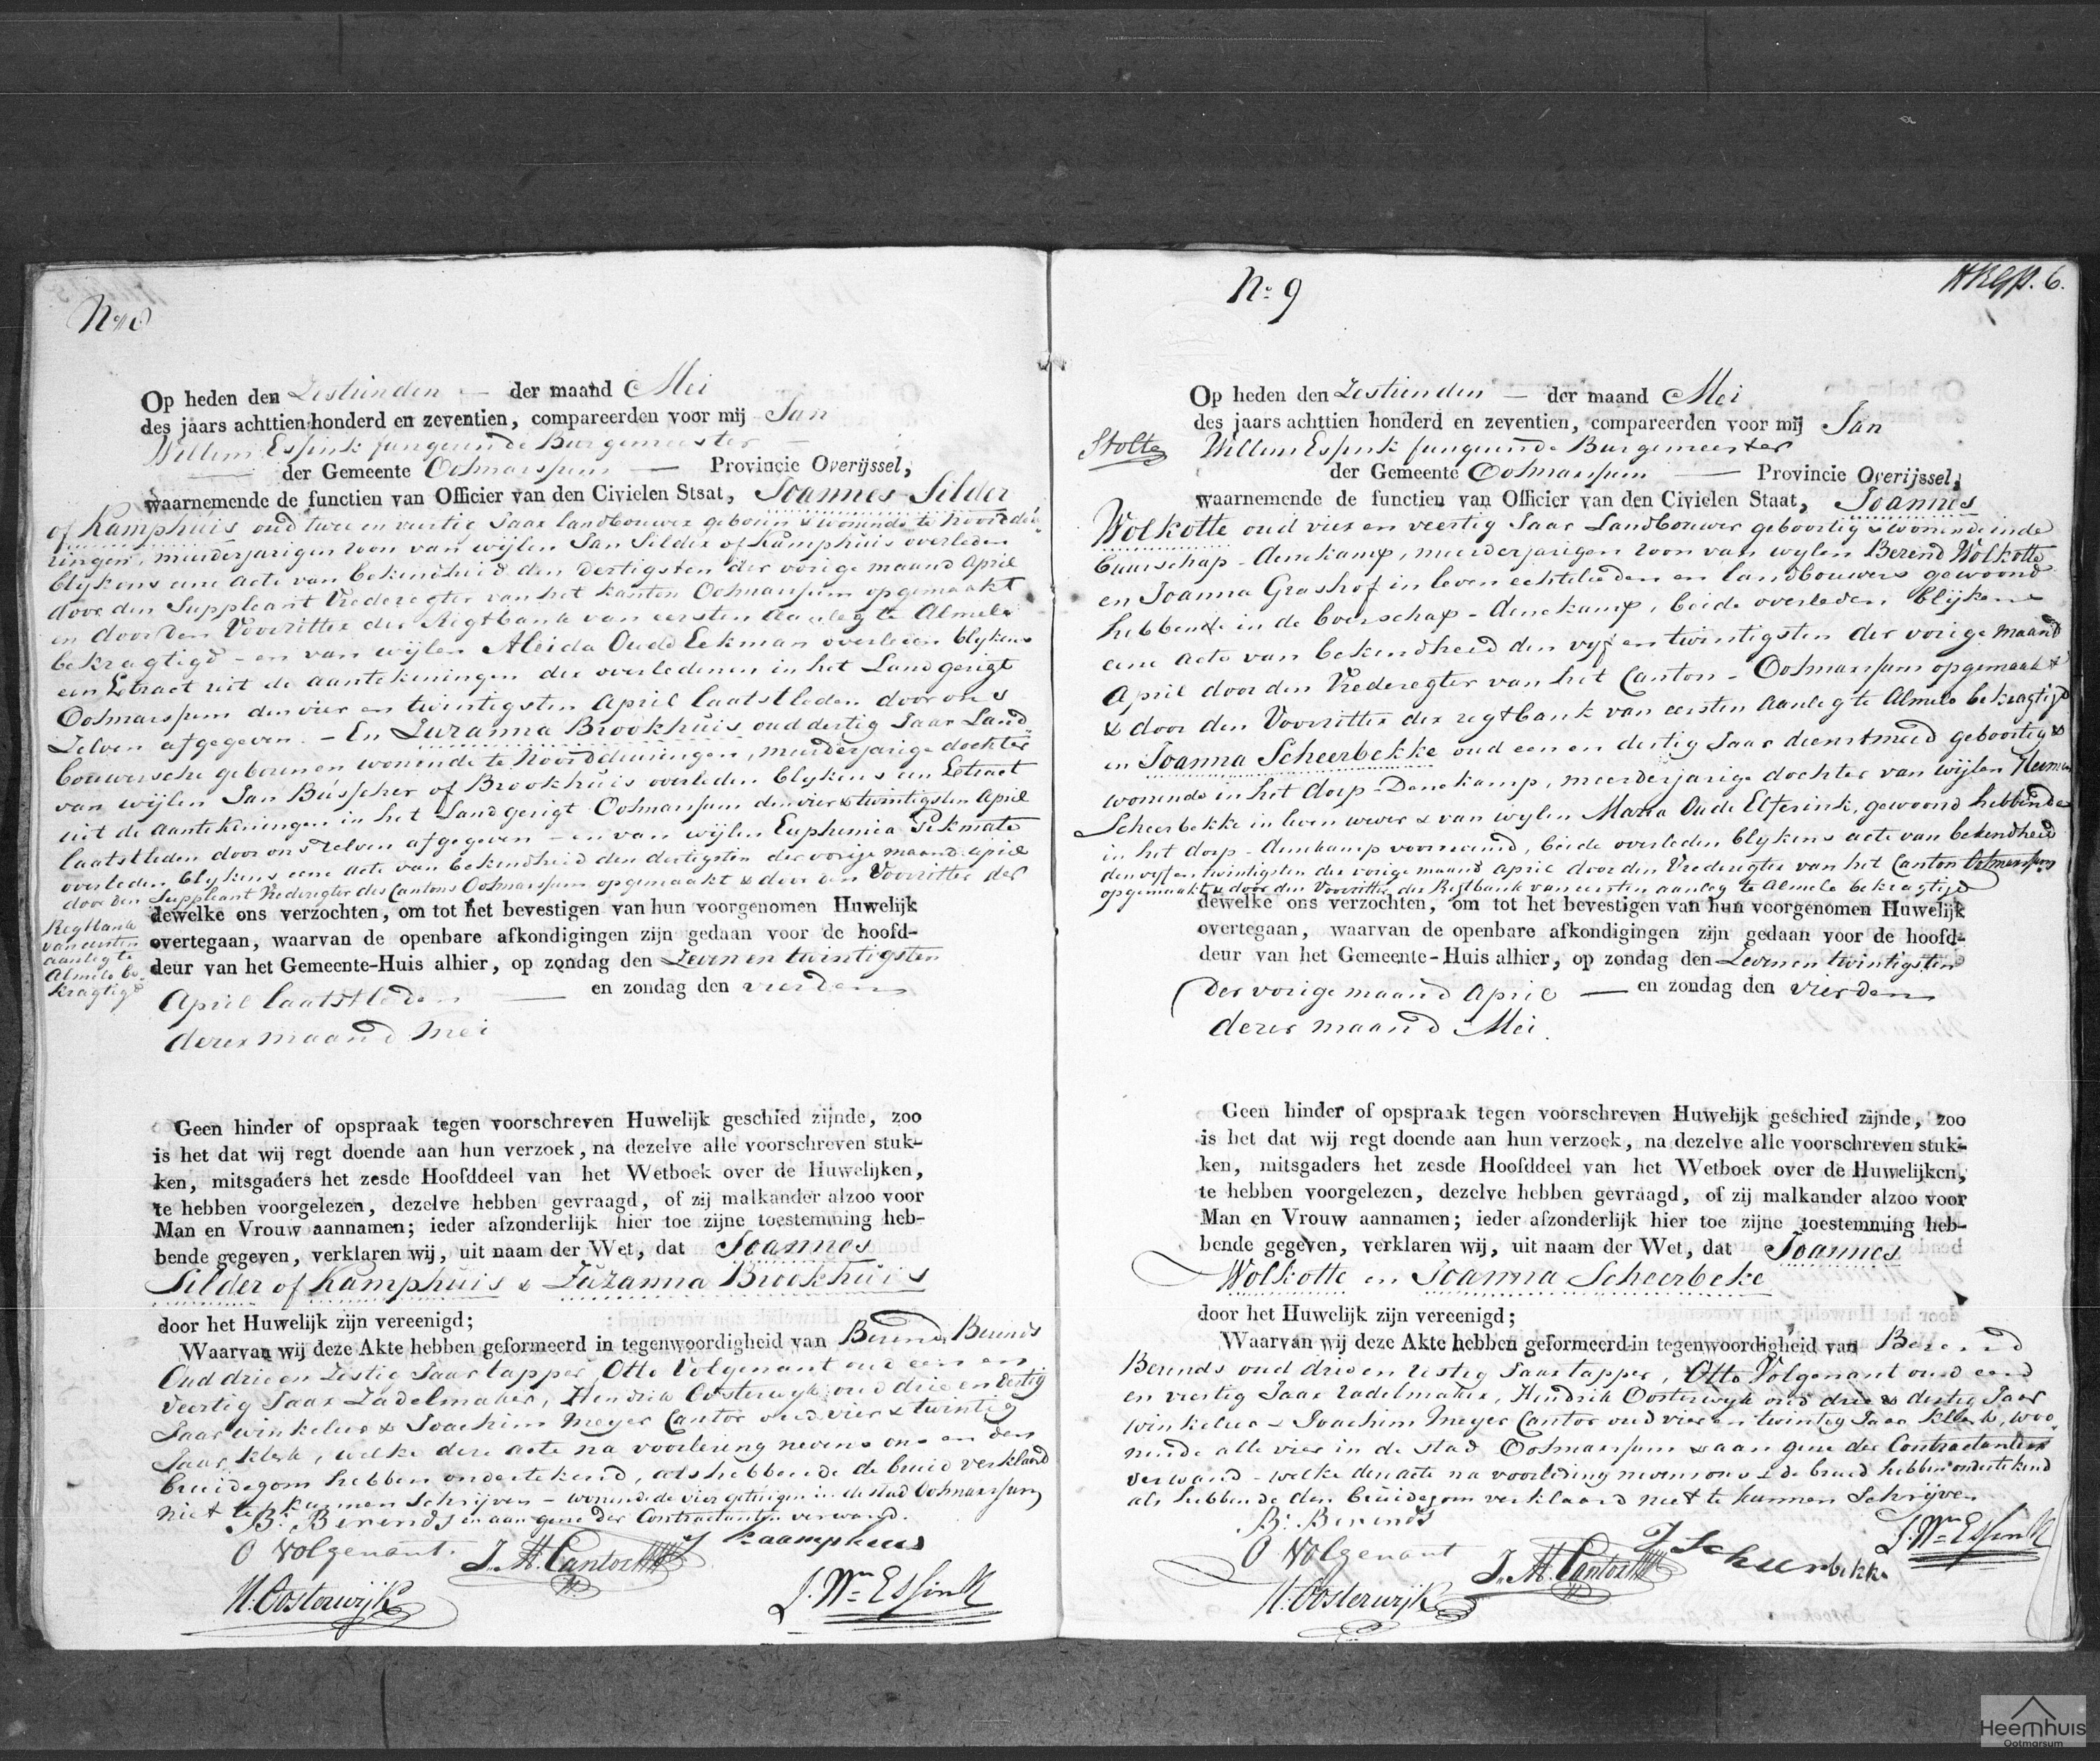 No 8
Op heden den Zestienden — der maand Mei
des jaars achttien honderd en zeventien, compareerden voor mij Jan
Willem Essink fungeerende Burgemeester
der Gemeente Ootmarssum — Provincie Overijssel,
waarnemende de functien van Officier van den Civielen Stsat, Joannes Silder
of Kamphuis oud twee en veertig Jaar landbouwer geboren & wonende te Noordeu-
ringen, meerderjarigen zoon van wijlen Jan Silder of Kamphuis overleden
blijkens eene acte van bekendheid den dertigsten der vorige maand April
door den Suppleant Vrederegter van het kanton Ootmarssum opgemaakt
en door den Voorzitter der Regtbank van eersten Aanleg te Almelo
bekragtigd - en van wijlen Aleida Oude Eekman overleden blijkens
een Extract uit de aantekeningen der overledenen in het Landgerigt
Ootmarssum den vier en twintigsten April laatstleden door ons
Zelven afgegeven. - En Zuzanna Brookhuis oud dertig Jaar Land-
bouwersche geboren en wonende te Noorddeuningen, meerderjarige dochter
van wijlen Jan Busscher of Brookhuis overleden blijkens een Extract
uit de aantekeningen in het Landgerigt Ootmarssum den vier & twintigsten April
laatstleden door ons zelven afgegeven - en van wijlen Euphemia Pikmate
overleden blijkens eene acte van bekendheid den dertigsten der vorige maand April
door den Suppleant Vrederegter des Cantons Ootmarssum opgemaakt & door den Voorzitter der
Regtbank
van eersten
aanleg te
Almelo be-
kragtigd
dewelke ons verzochten, om tot het bevestigen van hun voorgenomen Huwelijk
overtegaan, waarvan de openbare afkondigingen zijn gedaan voor de hoofd-
deur van het Gemeente-Huis alhier, op zondag den Zeven en twintigsten
April laatstleden — en zondag den vierden
dezer maand Mei
Geen hinder of opspraak tegen voorschreven Huwelijk geschied zijnde, zoo
is het dat wij regt doende aan hun verzoek, na dezelve alle voorschreven stuk-
ken, mitsgaders het zesde Hoofddeel van het Wetboek over de Huwelijken,
te hebben voorgelezen, dezelve hebben gevraagd, of zij malkander alzoo voor
Man en Vrouw aannamen; ieder afzonderlijk hier toe zijne toestemming heb-
bende gegeven, verklaren wij, uit naam der Wet, dat Joannes
Silder of Kamphuis & Zuzanna Brookhuis
door het Huwelijk zijn vereenigd;
Waarvan wij deze Akte hebben geformeerd in tegenwoordigheid van Berend Berends
Oud drie en Zestig Jaar tapper, Otto Volgenant oud een en
veertig Jaar Zadelmaker, Hendrik Oosterwijk oud drie en dertig
Jaar winkelier & Joachim Meyer Cantor oud vier & twintig
Jaar klerk, welke deze acte na voorlezing nevens ons en den
bruidegom hebben ondertekend, als hebbende de bruid verklaard
niet te kunnen Schrijven - wonende de vier getuigen in de stad Ootmarssum
en aan gene der Contractanten verwand.
B: Berends
O Volgenant.
J. M. Cantor
J Kaamphuus
H: Oosterwijk
J. Wm Essink
No 9
6.
Stolte
Op heden den Zestienden — der maand Mei
des jaars achttien honderd en zeventien, compareerden voor mij Jan
Willem Essink fungeerende Burgemeester
der Gemeente Ootmarssum — Provincie Overijssel,
waarnemende de functien van Officier van den Civielen Staat, Joannes
Wolkotte oud vier en veertig Jaar Landbouwer geboortig & wonende in de
buurschap Denekamp, meerderjarigen zoon van wylen Berend Wolkotte
en Joanna Grashof in leven echtelieden en landbouwers gewoond
hebbende in de boerschap Denekamp, beide overleden blijkens
eene acte van bekendheid den vijf en twintigsten der vorige maand
April door den Vrederegter van het Canton - Ootmarssum opgemaakt
& door den Voorzitter der regtbank van eersten Aanleg te Almelo bekragtigd
en Joanna Scheerbekke oud een en dertig Jaar dienstmeid geboortig &
wonende in het dorp Denekamp, meerderjarige dochter van wijlen Herman
Scheerbekke in leven wever & van wijlen Maria Oude Elferink, gewoond hebbende
in het dorp Denekamp voornoemd, beide overleden blijkens acte van bekendheid
den vijf en twintigsten der vorige maand April door den Vrederegter van het Canton Ootmarssum
opgemaakt & door den Voorzitter der Regtbank van eersten aanleg te Almelo bekragtigd
dewelke ons verzochten, om tot het bevestigen van hun voorgenomen Huwelijk
overtegaan, waarvan de openbare afkondigingen zijn gedaan voor de hoofd-
deur van het Gemeente-Huis alhier, op zondag den Zeven en twintigsten
der vorige maand April — en zondag den vierden
dezer maand Mei.
Geen hinder of opspraak tegen voorschreven Huwelijk geschied zijnde, zoo
is het dat wij regt doende aan hun verzoek, na dezelve alle voorschreven stuk-
ken, mitsgaders het zesde Hoofddeel van het Wetboek over de Huwelijken,
te hebben voorgelezen, dezelve hebben gevraagd, of zij malkander alzoo voor
Man en Vrouw aannamen; ieder afzonderlijk hier toe zijne toestemming heb-
bende gegeven, verklaren wij, uit naam der Wet, dat Joannes
Wolkotte en Joanna Scheerbeke
door het Huwelijk zijn vereenigd;
Waarvan wij deze Akte hebben geformeerd in tegenwoordigheid van Berend
Berends oud drie en zestig Jaar tapper, Otto Volgenant oud een
en viertig Jaar zadelmaker, Hendrik Oosterwyk oud drie & dertig Jaar
winkelier & Joachim Meyer Cantor oud vier en twintig Jaar klerk, woo-
nende alle vier in de stad Ootmarssum & aan gene der Contractanten
verwand - welke deze acte na voorlezing nevens ons & de bruid hebben ondertekend
als hebbende den bruidegom verklaard niet te kunnen Schrijven
B: Berends
O Volgenant
J. M. Cantor
J Schurbekke
J. Wm Essink
H: Oosterwijk
Heemhuis
Ootmarsum